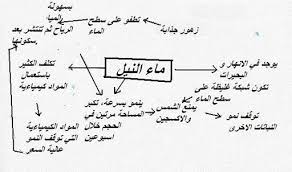 بسهولة
زهور جذابة
تطفو على سطح الماء
الرياح ثم تنتشر بعد
سكونها
ماء النيل
يوجد في الانهار و
البحيرات
تكون شبكة غليظة على
سطح الماء
يمنع الشمس
والاكسجين
توقف نمو
النباتات الاخرى
ينمو بسرعة، تكبر
المساحة مرتين في
الحجم خلال
اسبوعين
تكلف الكثير
باستعمال
المواد كيمياءية
المواد الكيميائية
التي توقف النمو
عالية السعر